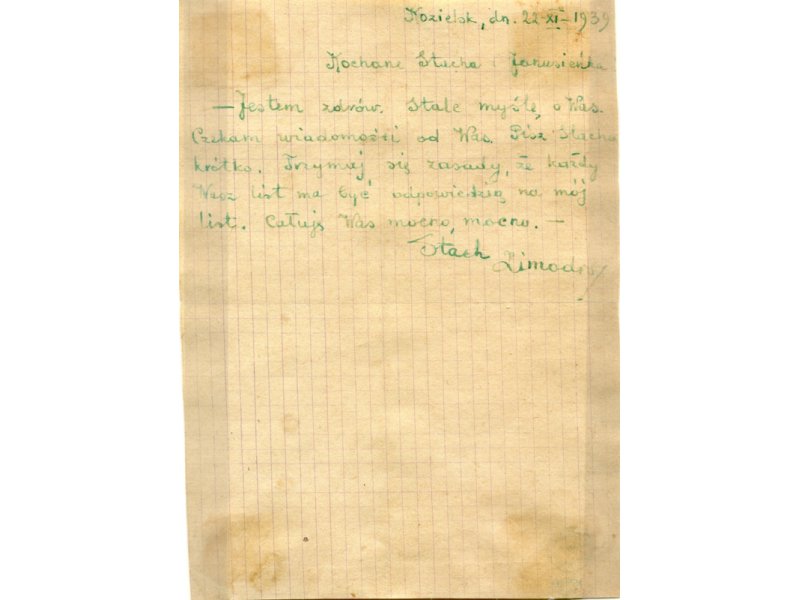 Kozielsk, dn. 22-XI-1939
Kochane Stacha i Janusieńka
— Jestem zdrów. Stale myślę o Was.
Czekam wiadomości od Was. Pisz Stacha
krótko. Trzymaj się zasady, że każdy
Wasz list ma być odpowiedzią na mój
list. Całuję Was mocno, mocno. —
Stach